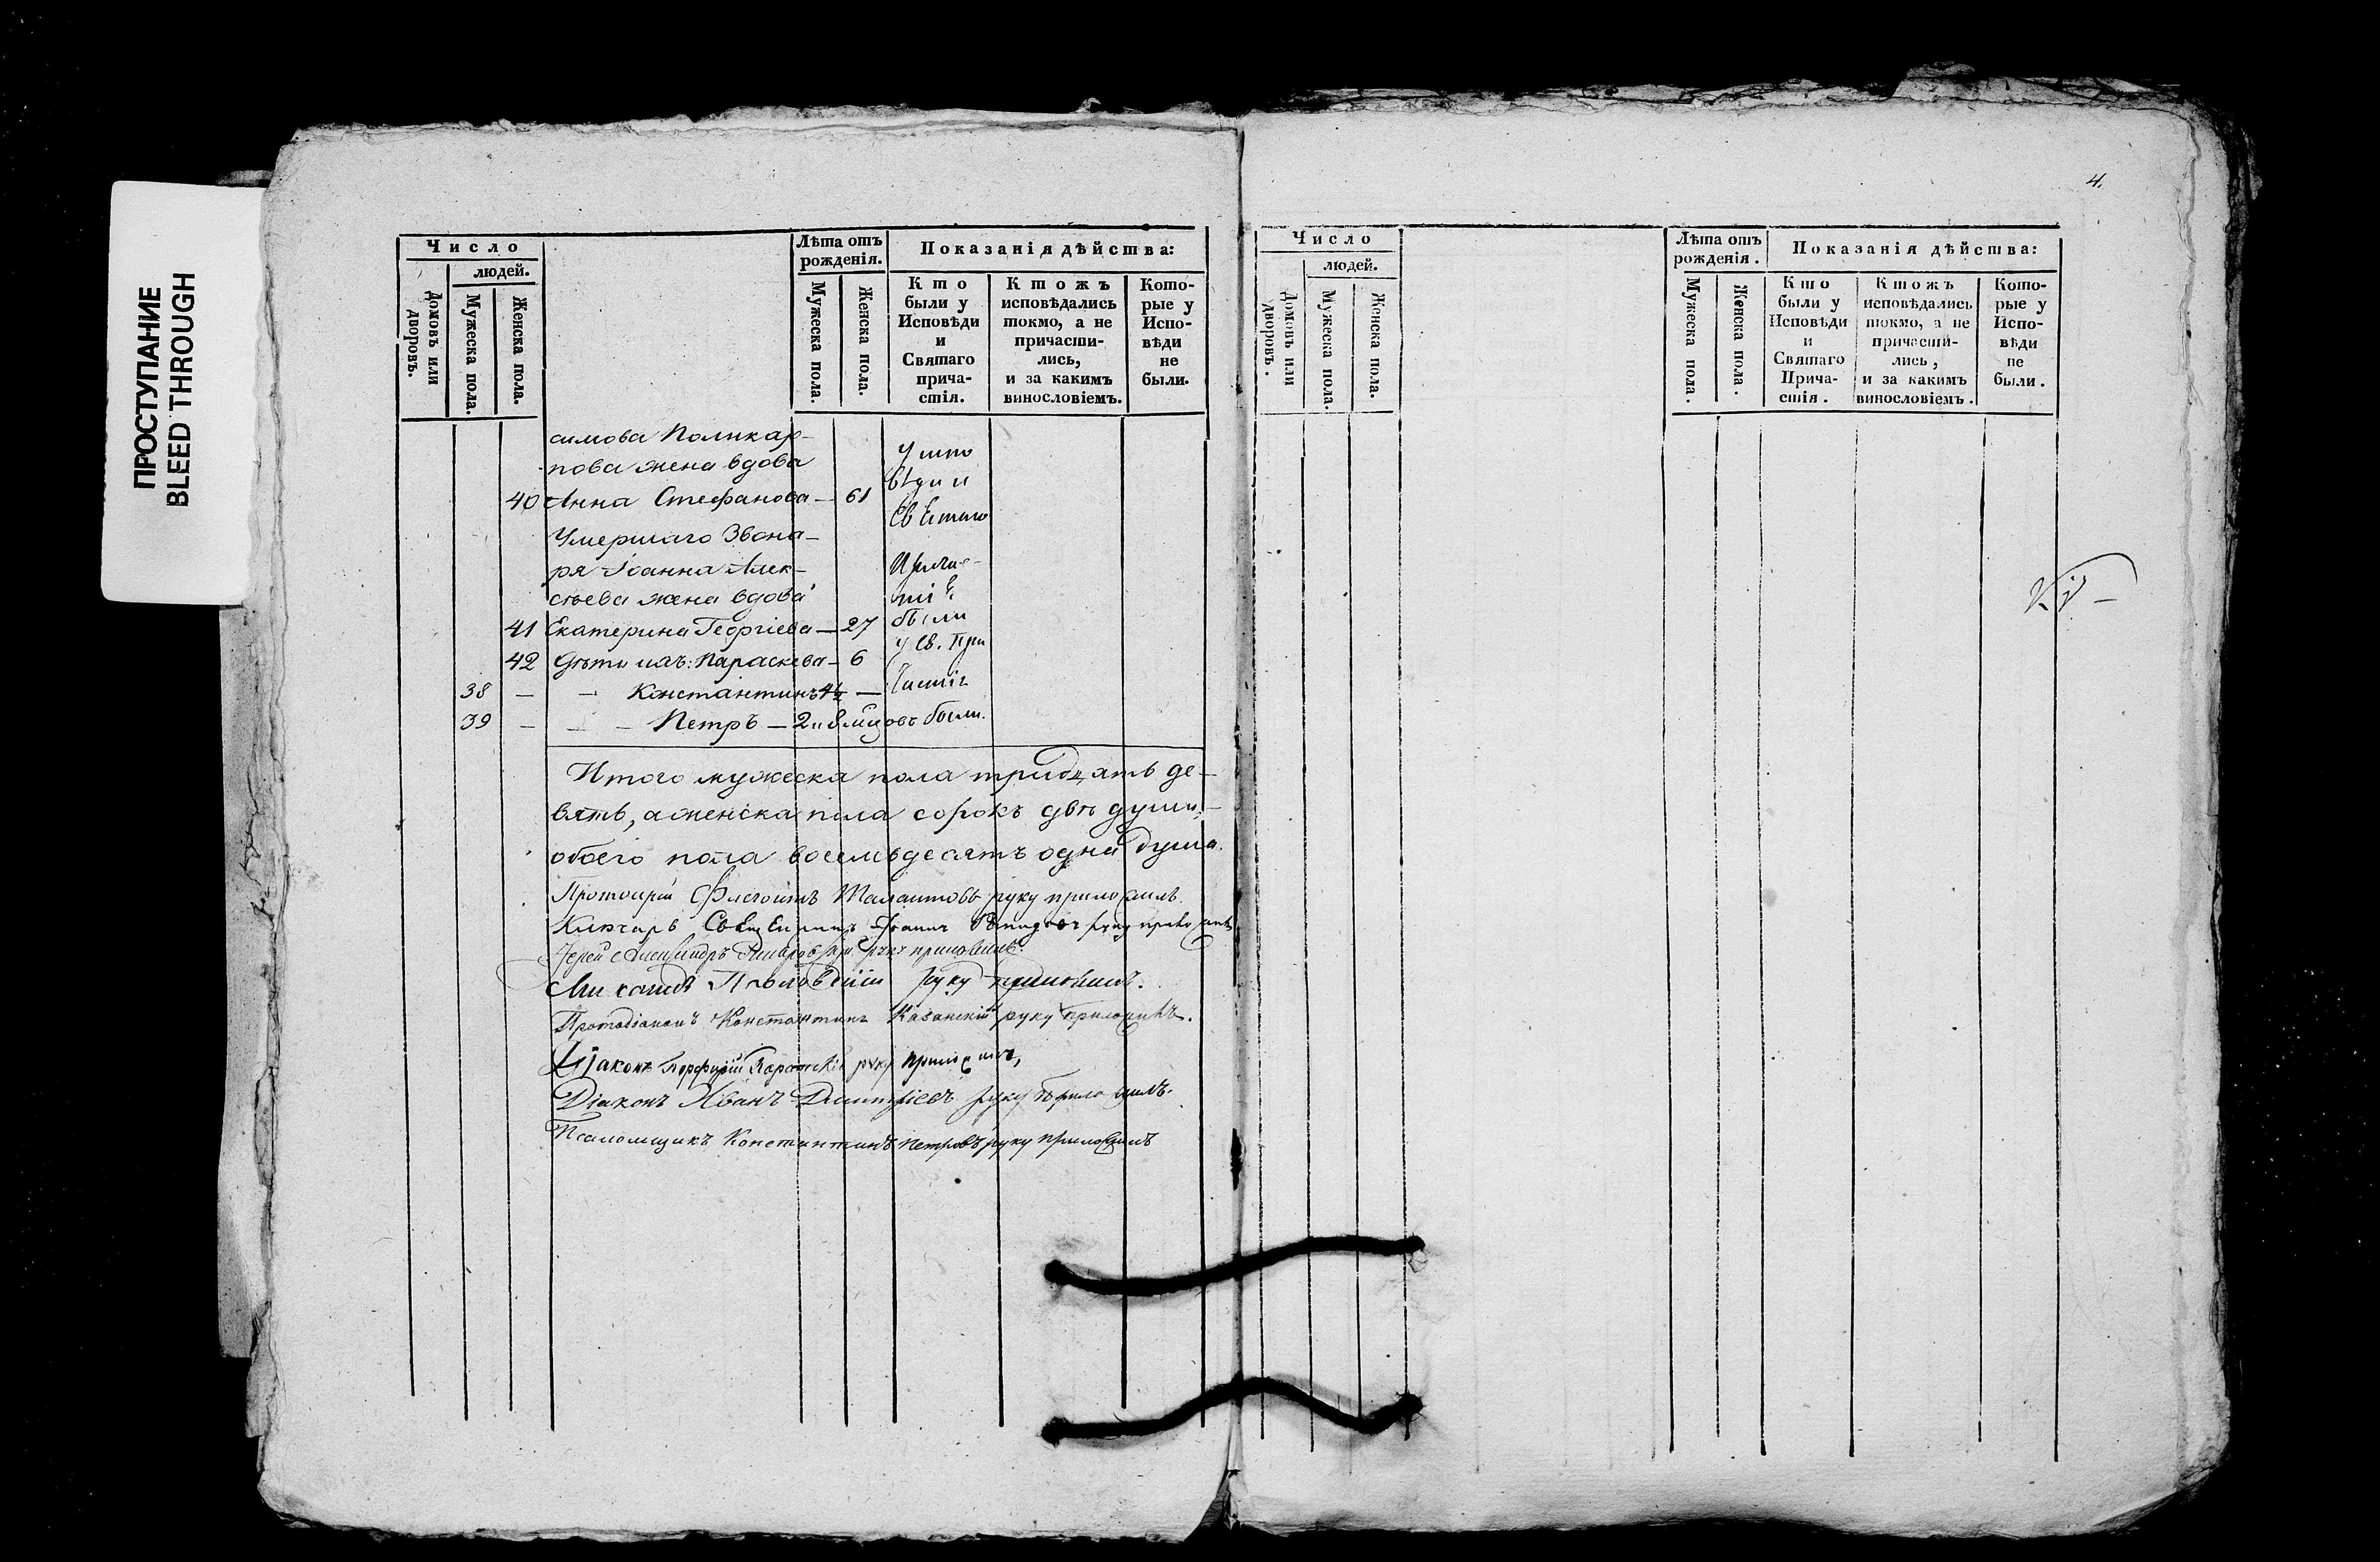 ПРОСТУПАНИЕ
BLEED THROUGH
4.
Число
людей.
Домовъ или дворовъ.
Мужеска пола.
Женска пола.
Лѣта отъ рожденія.
Мужеска пола.
Женска пола.
Показанія дѣйства:
Кто были у Исповѣди и Святаго прича-стія.
Ктожъ исповѣдались токмо, а не причасти-лись, и за какимъ винословіемъ.
Кото-рые у Испо-вѣди не были.
симова Поликар-
пова жена вдова
40 Анна Стефанова — 61
Умершаго Звона-
ря Іоанна Алек-
сѣева жена вдова
41 Екатерина Георгіева — 27
42 Дѣти ихъ: Параскева — 6
38 — — Константинъ 4½ —
39 — — — Петръ — 2 и 8 мцовъ были.
вѣди и
были
у Св. При
частія
Итого мужеска пола тридцать де-
вять, а женска пола сорокъ двѣ души,
обоего пола восемьдесятъ одна душа.
Протоіерей руку приложилъ.
Ключарь Священникъ Іоаннъ руку приложилъ
Іерей Александръ руку приложилъ.
руку приложилъ.
Протодіаконъ Константинъ Казанскій руку приложилъ.
Діаконъ Порфирій руку приложилъ,
Діаконъ Иванъ Димитріевъ руку приложилъ.
Псаломщикъ Константинъ Петровъ руку приложилъ
Число
людей.
Домовъ или дворовъ.
Мужеска пола.
Женска пола.
Лѣта отъ рожденія.
Мужеска пола.
Женска пола.
Показанія дѣйства:
Кто были у Исповѣди и Святаго Прича-стія.
Ктожъ исповѣдались токмо, а не причасти-лись, и за какимъ винословіемъ.
Кото-рые у Испо-вѣди не были.